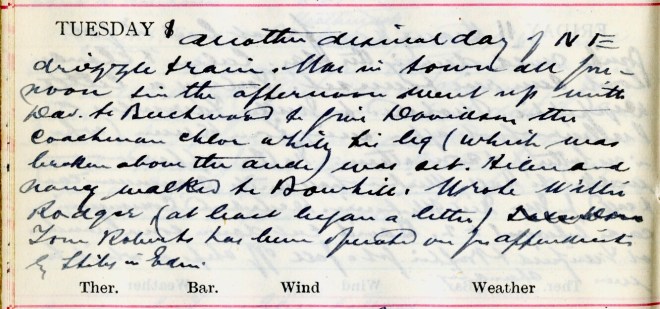 TUESDAY 8 another dismal day of NE
drizzle & rain. Was in town all fore-
noon in the afternoon went up with
Dav. to Buckwood to give Davidson the
coachman chlor while his leg (which was
broken above the ancle) was set. Helen and
nancy walked to Bowhill. Wrote Willie
Rodger (at least began a letter)
Tom Roberts has been operated on for appendicitis
by Stiles in Edin.
Ther. Bar. Wind Weather